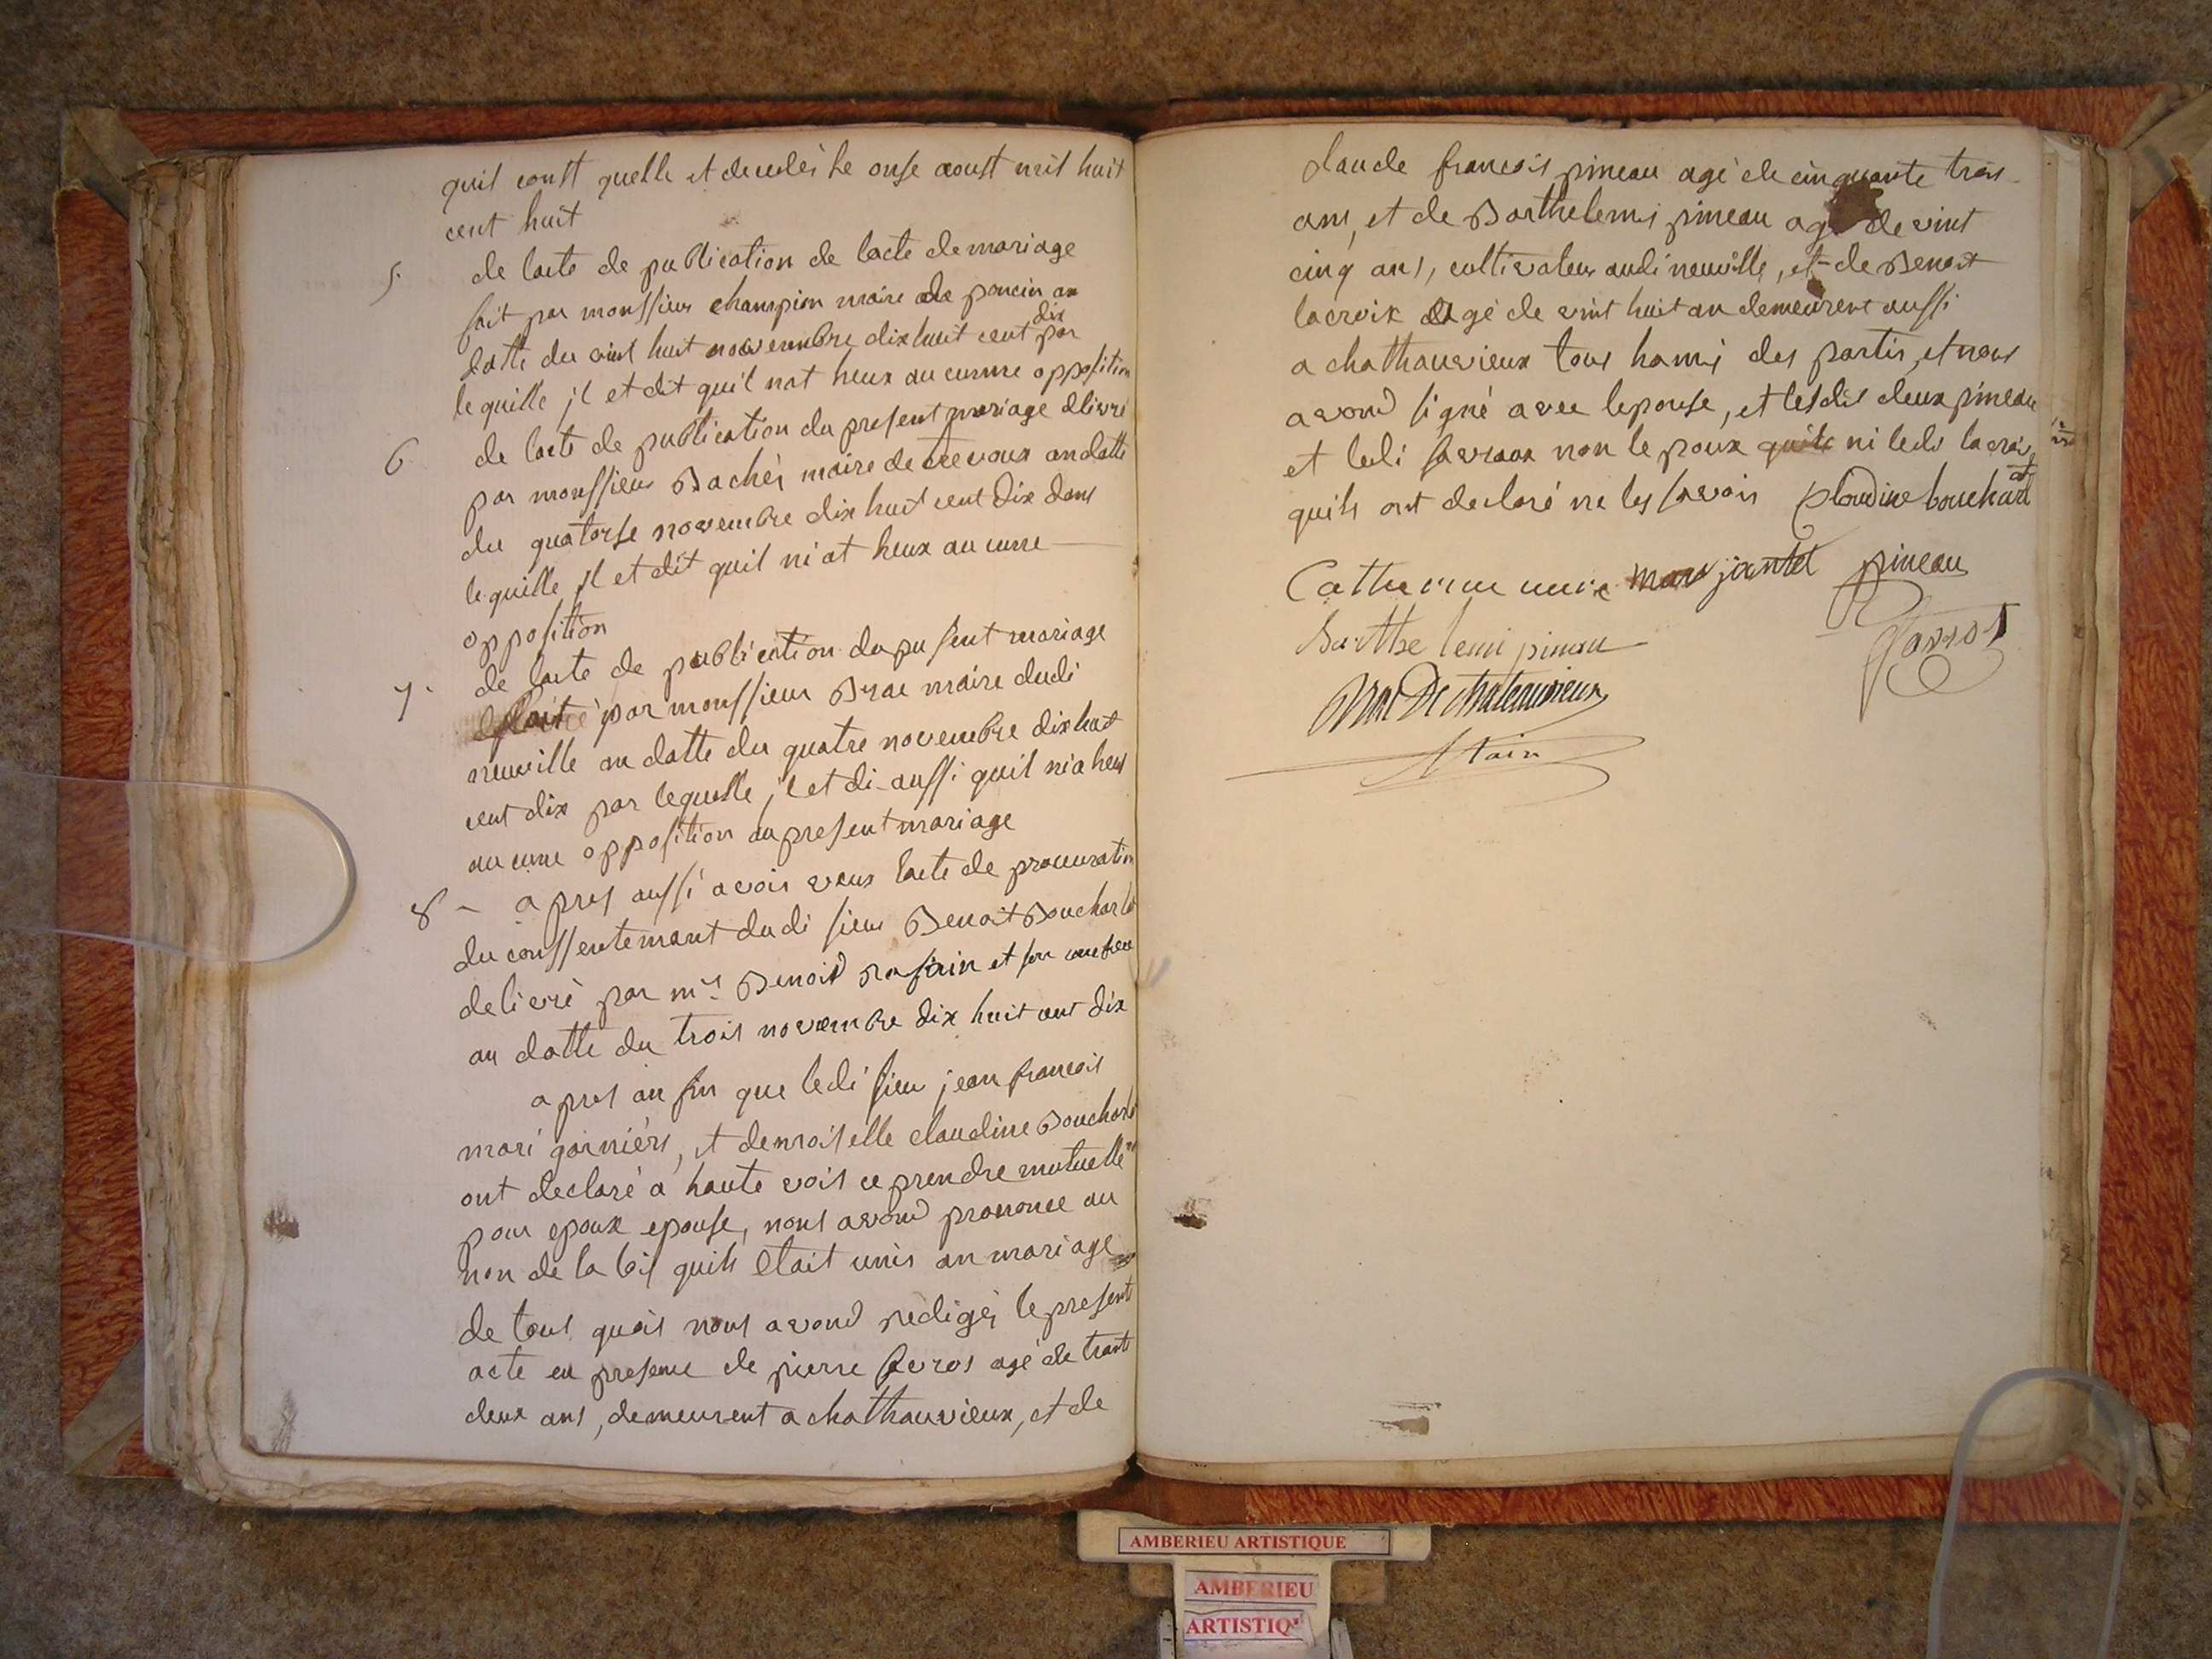 quil const quelle et decedés le onse aoust mil huit
cent huit
5. de lacte de publication de lacte de mariage
fait par monssieur champion maire de poncin an
datte du vint huit novembre dix huit cent dix par
le quille il et dit quil nat heux au cunne opposition
6 de lacte de publication du present mariage dlivré
par monssieur Bachés maire de trevoux an datte
du quatorse novembre dix huit cent dix dans
le quille il et dit quil ni at heux au cunne
opposition
7. de lacte de publication du present mariage
par monssieur Brac maire dudi
neuville an datte du quatre novembre dix huit
cent dix par lequelle il et di aussi quil ni a heux
au cune opposition au present mariage
8 - apres aussi avoir veux lacte de procuration
du conssentemant dudi sieur Benoit Bouchard
delivré par mr Benoid et son confrere
an datte du trois novembre dix huit cent dix
apres an fin que ledi sieur jean francois
mari garniérs, et demoiselle claudine Bouchard
ont declaré a haute vois ce prendre mutuelle
pour epoux epouse, nous avond prononce au
non de la loi quils etait unis an mariage
de tous quois nous avond redigéi le present
acte en presence de pierre savros agé de trant
deux ans, demeurent a chathauvieux, et de
Claude francois pineau agé de cinquante trois
ans, et de Barthelemi pineau agé de vint
cinq ans, cultivateur audi neuville, et de Benoit
lacroix agé de vint huit an demeurent aussi
a chathauvieux tous hamis des partis, et nous
avond signé avec lepouse, et lesdis deux pineau
et ledi savraox non le poux quils ni ledi lacroix
quils ont declaré ne les savoir Claudine bouchard
Catherine marjantel pineau
Barthelemi pineau Savros
Brac De chateauvieux
Stain
AMBERIEU ARTISTIQUE
AMBERIEU
ARTISTIQ